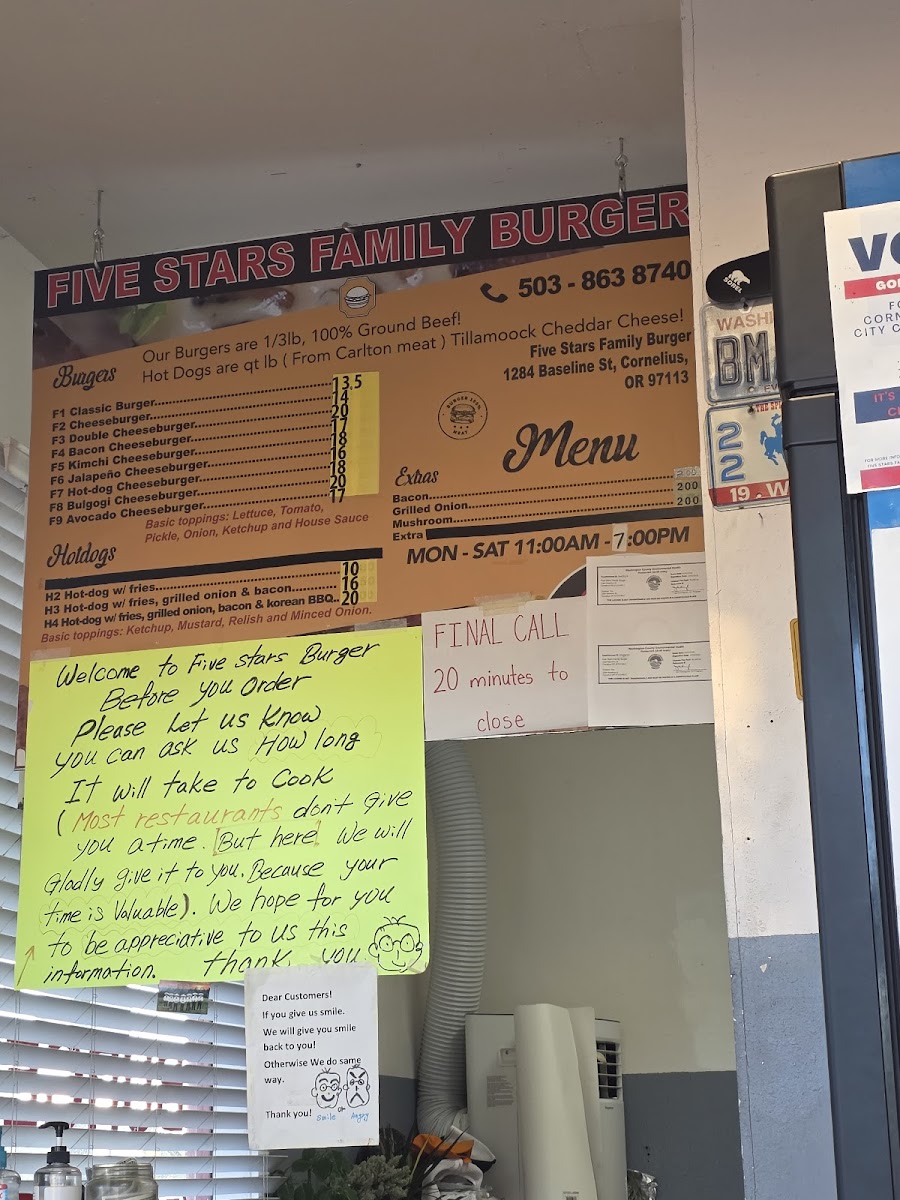 FIVE STARS FAMILY BURGER
503 - 863 8740
Our Burgers are 1/3lb, 100% Ground Beef!
Hot Dogs are qt lb ( From Carlton meat ) Tillamoock Cheddar Cheese!
Five Stars Family Burger
1284 Baseline St, Cornelius,
OR 97113
Burgers
F1 Classic Burger 13.5
F2 Cheeseburger 14
F3 Double Cheeseburger 20
F4 Bacon Cheeseburger 17
F5 Kimchi Cheeseburger 18
F6 Jalapeño Cheeseburger 16
F7 Hot-dog Cheeseburger 18
F8 Bulgogi Cheeseburger 20
F9 Avocado Cheeseburger 17
Basic toppings: Lettuce, Tomato,
Pickle, Onion, Ketchup and House Sauce
Menu
Extras
Bacon
Grilled Onion 200
Mushroom 200
Extra
MON - SAT 11:00AM - 7:00PM
Hotdogs
H2 Hot-dog w/ fries 10
H3 Hot-dog w/ fries, grilled onion & bacon 16
H4 Hot-dog w/ fries, grilled onion, bacon & korean BBQ 20
Basic toppings: Ketchup, Mustard, Relish and Minced Onion.
FINAL CALL
20 minutes to
close
Welcome to Five stars Burger
Before you Order
Please Let us Know
you can ask us How long
It will take to Cook
(Most restaurants don't Give
you a time. [But here] We will
Gladly give it to you. Because your
time is Valuable). We hope for you
to be appreciative to us this
information. Thank you
Dear Customers!
If you give us smile.
We will give you smile
back to you!
Otherwise We do same
way.
Thank you!
Smile or Angry
SOREL
WASHI
BM
22
19